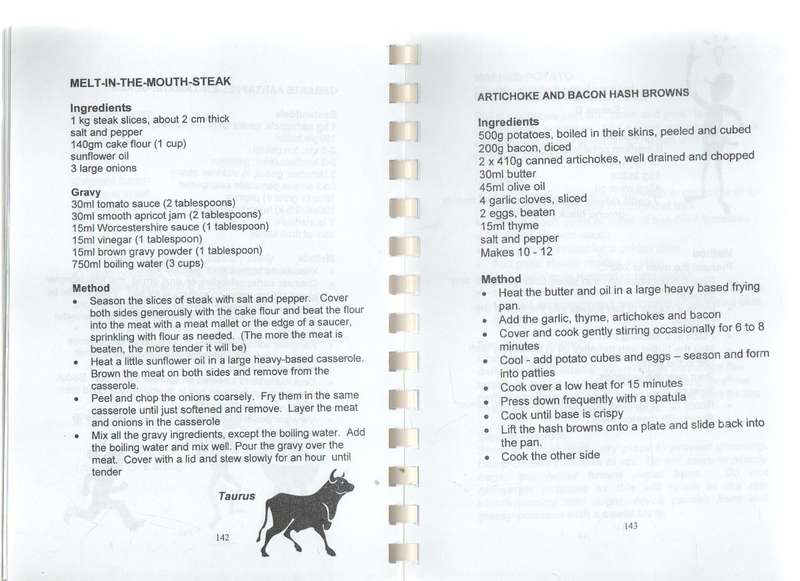 MELT-IN-THE-MOUTH-STEAK
Ingredients
1 kg steak slices, about 2 cm thick
salt and pepper
140gm cake flour (1 cup)
sunflower oil
3 large onions
Gravy
30ml tomato sauce (2 tablespoons)
30ml smooth apricot jam (2 tablespoons)
15ml Worcestershire sauce (1 tablespoon)
15ml vinegar (1 tablespoon)
15ml brown gravy powder (1 tablespoon)
750ml boiling water (3 cups)
Method
• Season the slices of steak with salt and pepper. Cover
both sides generously with the cake flour and beat the flour
into the meat with a meat mallet or the edge of a saucer,
sprinkling with flour as needed. (The more the meat is
beaten, the more tender it will be)
• Heat a little sunflower oil in a large heavy-based casserole.
Brown the meat on both sides and remove from the
casserole.
• Peel and chop the onions coarsely. Fry them in the same
casserole until just softened and remove. Layer the meat
and onions in the casserole
• Mix all the gravy ingredients, except the boiling water. Add
the boiling water and mix well. Pour the gravy over the
meat. Cover with a lid and stew slowly for an hour until
tender
Taurus
142
ARTICHOKE AND BACON HASH BROWNS
Ingredients
500g potatoes, boiled in their skins, peeled and cubed
200g bacon, diced
2 x 410g canned artichokes, well drained and chopped
30ml butter
45ml olive oil
4 garlic cloves, sliced
2 eggs, beaten
15ml thyme
salt and pepper
Makes 10 - 12
Method
• Heat the butter and oil in a large heavy based frying
pan.
• Add the garlic, thyme, artichokes and bacon
• Cover and cook gently stirring occasionally for 6 to 8
minutes
• Cool - add potato cubes and eggs – season and form
into patties
• Cook over a low heat for 15 minutes
• Press down frequently with a spatula
• Cook until base is crispy
• Lift the hash browns onto a plate and slide back into
the pan.
• Cook the other side
143